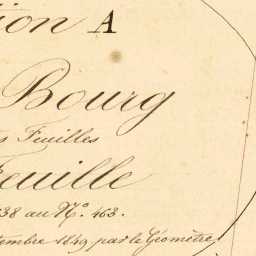 ion A
Bourg
Feuilles
euille
38 au N.º 463.
tembre 1849 par le Géomètre